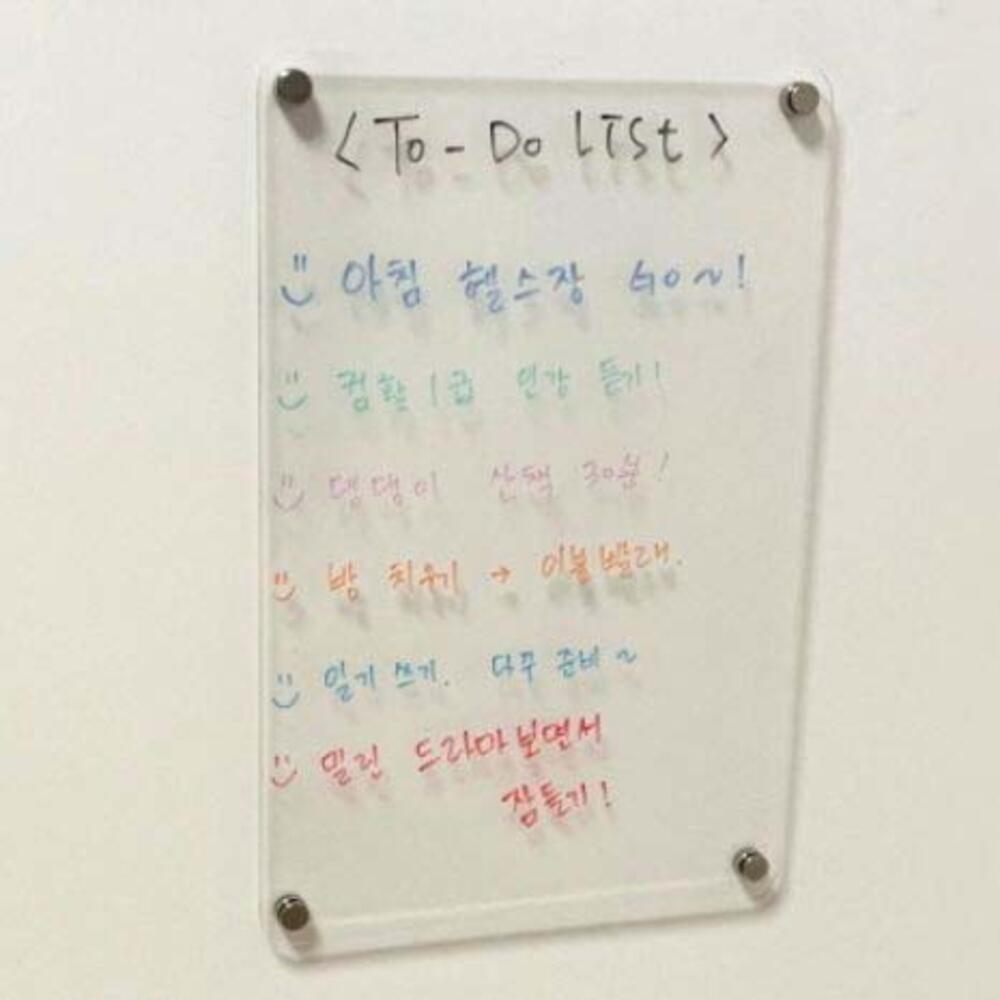 <To-Do LIST>
아침 헬스장 GO~!
컴활 1급 인강 듣기!
댕댕이 산책 30분!
방 치우기 → 이불빨래.
일기 쓰기. 다꾸 준비~
밀린 드라마보면서
잠들기!